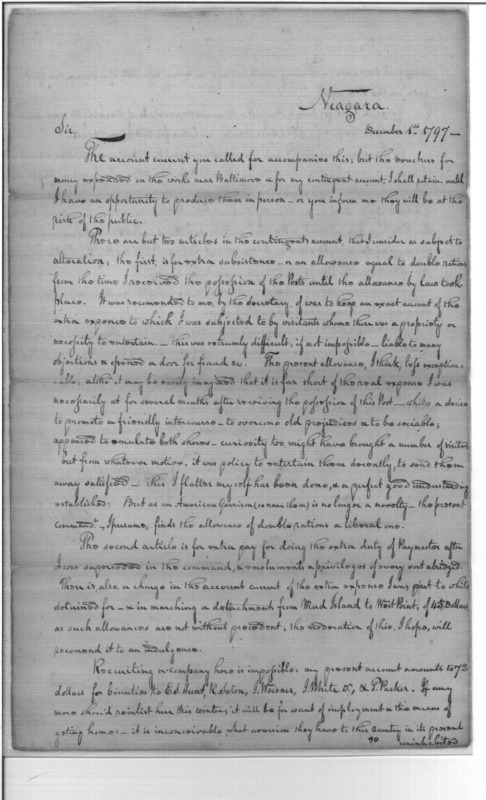 Niagara.
Sir,
December 1st 1797 -
The account current you called for accompanies this; but the vouchers for
money expended on the works near Baltimore & for my contingent account, I shall retain until
I have an opportunity to produce them in person - or you inform me they will be at the
risk of the public.
There are but two articles in the contingent account, that I consider as subject to
alteration; the first, is for extra subsistence - or an allowance equal to double rations
from the time I received the possession of the Posts until the allowance by law took
place. It was recomended to me, by the Secretary of war to keep an exact account of the
extra expence to which I was subjected to by visitants whome there was a propriety or
necessity to entertain - this was extremly difficult, if not impossible - liable to many
objections & opened a door for fraud &c. The present allowance, I think, less exception-
=able; altho' it may be easily imagined that it is far short of the real expense I was
necessarily at for several months after receiving the possession of this Post - while a desire
to promote a friendly intercourse - to overcome old prejudices & to be sociable;
appeared to emulate both shores - curiosity too might have brought a number of visitors
but from whatever motive, it was policy to entertain them decently, to send them
away satisfied - this I flatter myself has been done, & a perfect good understanding
established: But as an American Garrison is no longer a novelty - the present
Command.t, I presume, finds the allowance of double rations a liberal one.
The second article is for extra pay for doing the extra duty of Paymaster after
I was superseded in the command, & emoluments & privileges of every sort abridged.
There is, also, a charge in the account current of the extra expence I was put to while
detained for - & in marching a detachment from Mud Island to West Point, of Dollars
as such allowances are not without precedent, the moderation of this, I hope, will
recomend it to an indulgence.
Recruiting a company here is impossible: my present account amounts to 72
dollars for bounties to E.S. Hunt, R. Soton, J. Weisner, J. White & P. Parker. If any
more should reinlist here this winter, it will be for want of employment & the means of
geting home: - it is inconceivable what aversion they have to this Country in its present
uninhabited